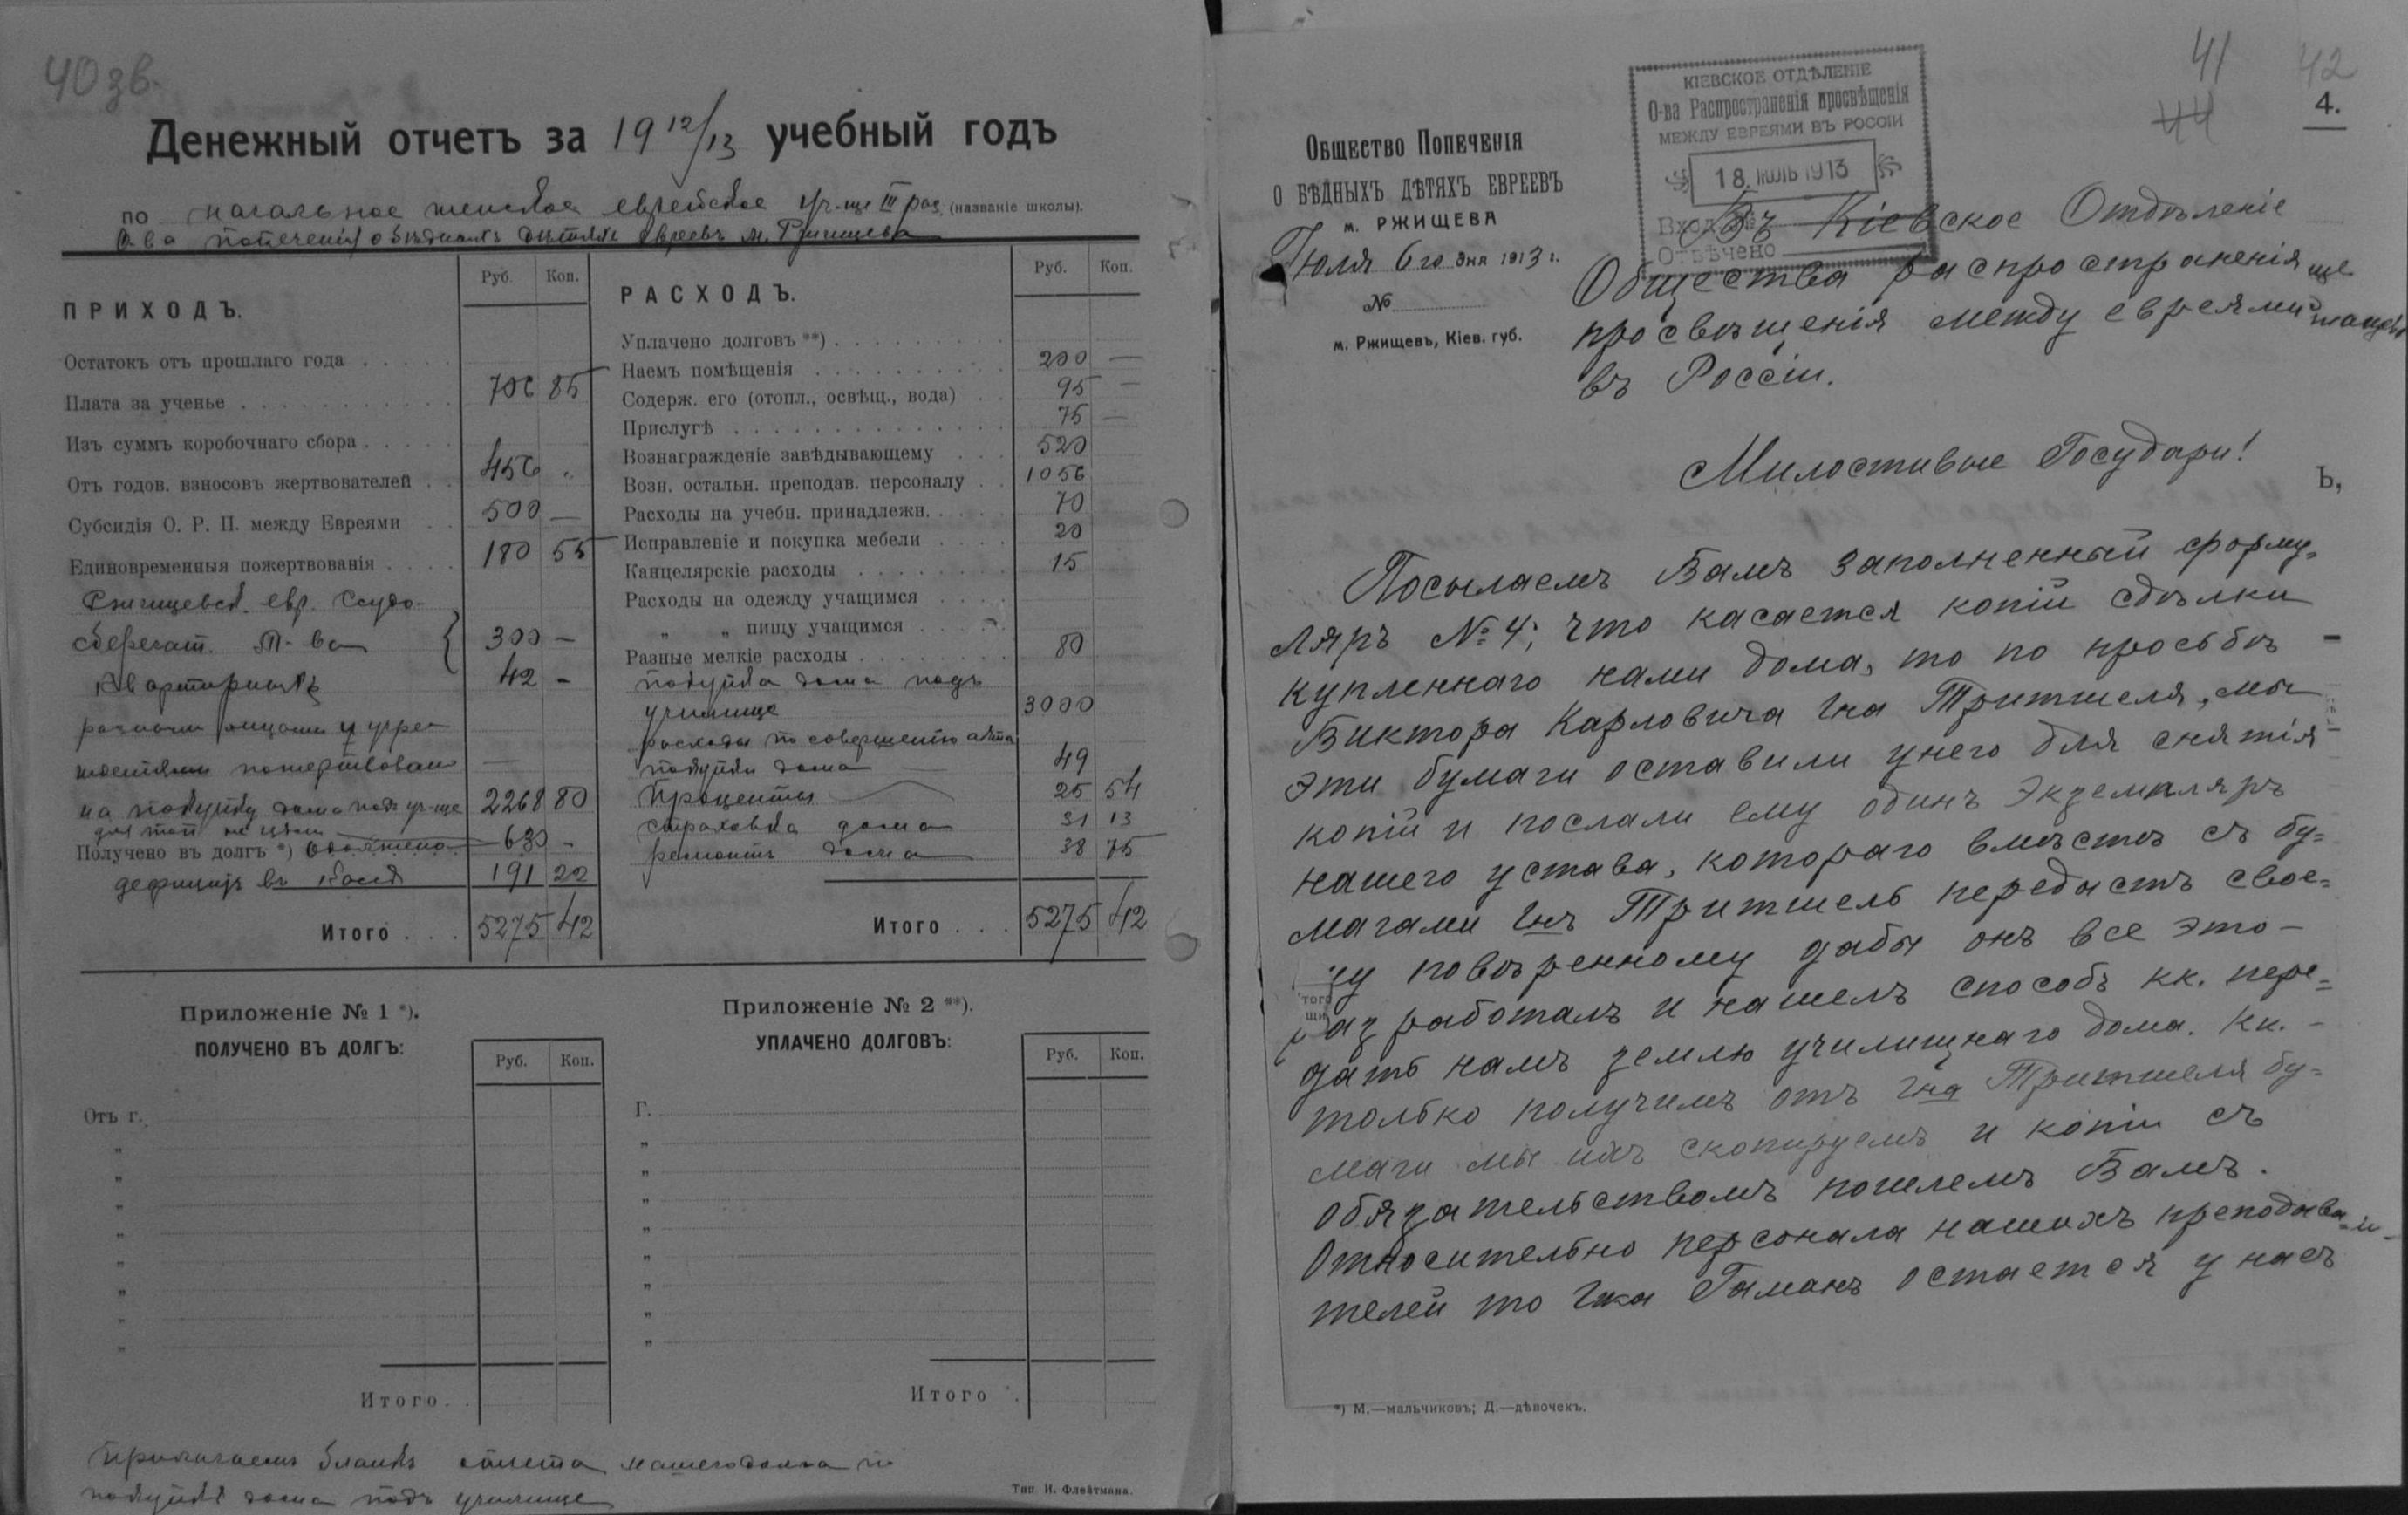 40 зв.
Денежный отчетъ за 1912/13 учебный годъ
по начальное женское еврейское уч-ще III раз. (названіе школы).
О-ва попеченія о бѣдныхъ дѣтяхъ евреевъ м. Ржищева
ПРИХОДЪ.
Руб. Коп.
Остатокъ отъ прошлаго года
Плата за ученье 706 85
Изъ суммъ коробочнаго сбора
Отъ годов. взносовъ жертвователей 456 .
Субсидія О. Р. П. между Евреями 500 —
Единовременныя пожертвованія 180 55
Ржищевск. евр. Ссудо-
сберегат. Т-ва 300 —
Квартирныхъ 42 -
разными лицами и учре-
жденіями пожертвован
на покупку дома подъ уч-ще 2268 80
для той же цѣли
Получено въ долгъ *) 630 -
дефицитъ въ 191 22
Итого . . . 5275 42
РАСХОДЪ.
Руб. Коп.
Уплачено долговъ **)
Наемъ помѣщенія 200 —
Содерж. его (отопл., освѣщ., вода) 95 —
Прислугѣ 75 —
Вознагражденіе завѣдывающему 520
Возн. остальн. преподав. персоналу 1056
Расходы на учебн. принадлежн. 70
Исправленіе и покупка мебели 20
Канцелярскіе расходы 15
Расходы на одежду учащимся
„ „ пищу учащимся
Разные мелкіе расходы 80
покупка дома подъ
училище 3000
расходы по совершенію акта
покупки дома 49
Проценты 25 54
страховка дома 31 13
ремонтъ дома 38 75
Итого . . . 5275 42
Приложеніе № 1 *).
ПОЛУЧЕНО ВЪ ДОЛГЪ:
Руб. Коп.
Отъ г.
„
„
„
„
„
„
„
„
Итого . .
Приложеніе № 2 **).
УПЛАЧЕНО ДОЛГОВЪ:
Руб. Коп.
Г.
„
„
„
„
„
„
„
„
Итого .
Прилагаемъ бланкъ отчета нашего долга по
покупкѣ дома подъ училище
Тип. И. Флейтмана.
41 42
44
4.
КІЕВСКОЕ ОТДѢЛЕНІЕ
О-ва Распространенія просвѣщенія
МЕЖДУ ЕВРЕЯМИ ВЪ РОССІИ
18. ІЮЛЬ 1913
Вход. №
Отвѣчено
Общество Попеченія
О БѢДНЫХЪ ДѢТЯХЪ ЕВРЕЕВЪ
м. РЖИЩЕВА
Іюля 6го дня 1913 г.
№
м. Ржищевъ, Кіев. губ.
Въ Кіевское Отдѣленіе
Общества распространенія
просвѣщенія между евреями
въ Россіи.
Милостивые Государи!
Ъ,
Посылаемъ Вамъ заполненный форму-
ляръ № 4; что касается копіи сдѣлки
купленнаго нами дома, то по просьбѣ
Виктора Карловича Гна Тритшеля, мы
эти бумаги оставили у него для снятія
копій и послали ему одинъ экземпляръ
нашего устава, котораго вмѣстѣ съ бу=
магами Гнъ Тритшель передастъ свое=
му повѣренному дабы онъ все это
разработалъ и нашелъ способъ кк. пере=
дать намъ землю училищнаго дома. Кк.
только получимъ отъ Гна Тритшеля бу=
маги мы ихъ скопируемъ и копіи съ
обязательствомъ пошлемъ Вамъ.
Относительно персонала нашихъ преподава-
телей то Гжа Гаманъ остается у насъ
того
щи
*) М.—мальчиковъ; Д.—дѣвочекъ.